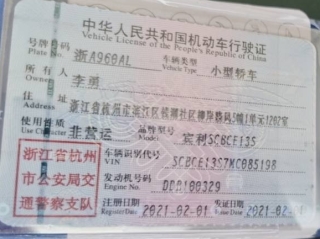 中华人民共和国机动车行驶证
Vehicle License of the People's Republic of China
号牌号码 浙A960AL 车辆类型 小型轿车
Plate No. Vehicle Type
所有人 李勇
Owner
住址 浙江省杭州市滨江区
1单元1202室
Address
使用性质 非营运 品牌型号 宾利SCBCE13S
Use Character Model
浙江省杭州
市公安局交
通警察支队
车辆识别代号
VIN
SCBCE13S7KC085198
发动机号码 DDB100329
Engine No.
注册日期 2021-02-01 发证日期 2021-02-01
Register Date Issue Date